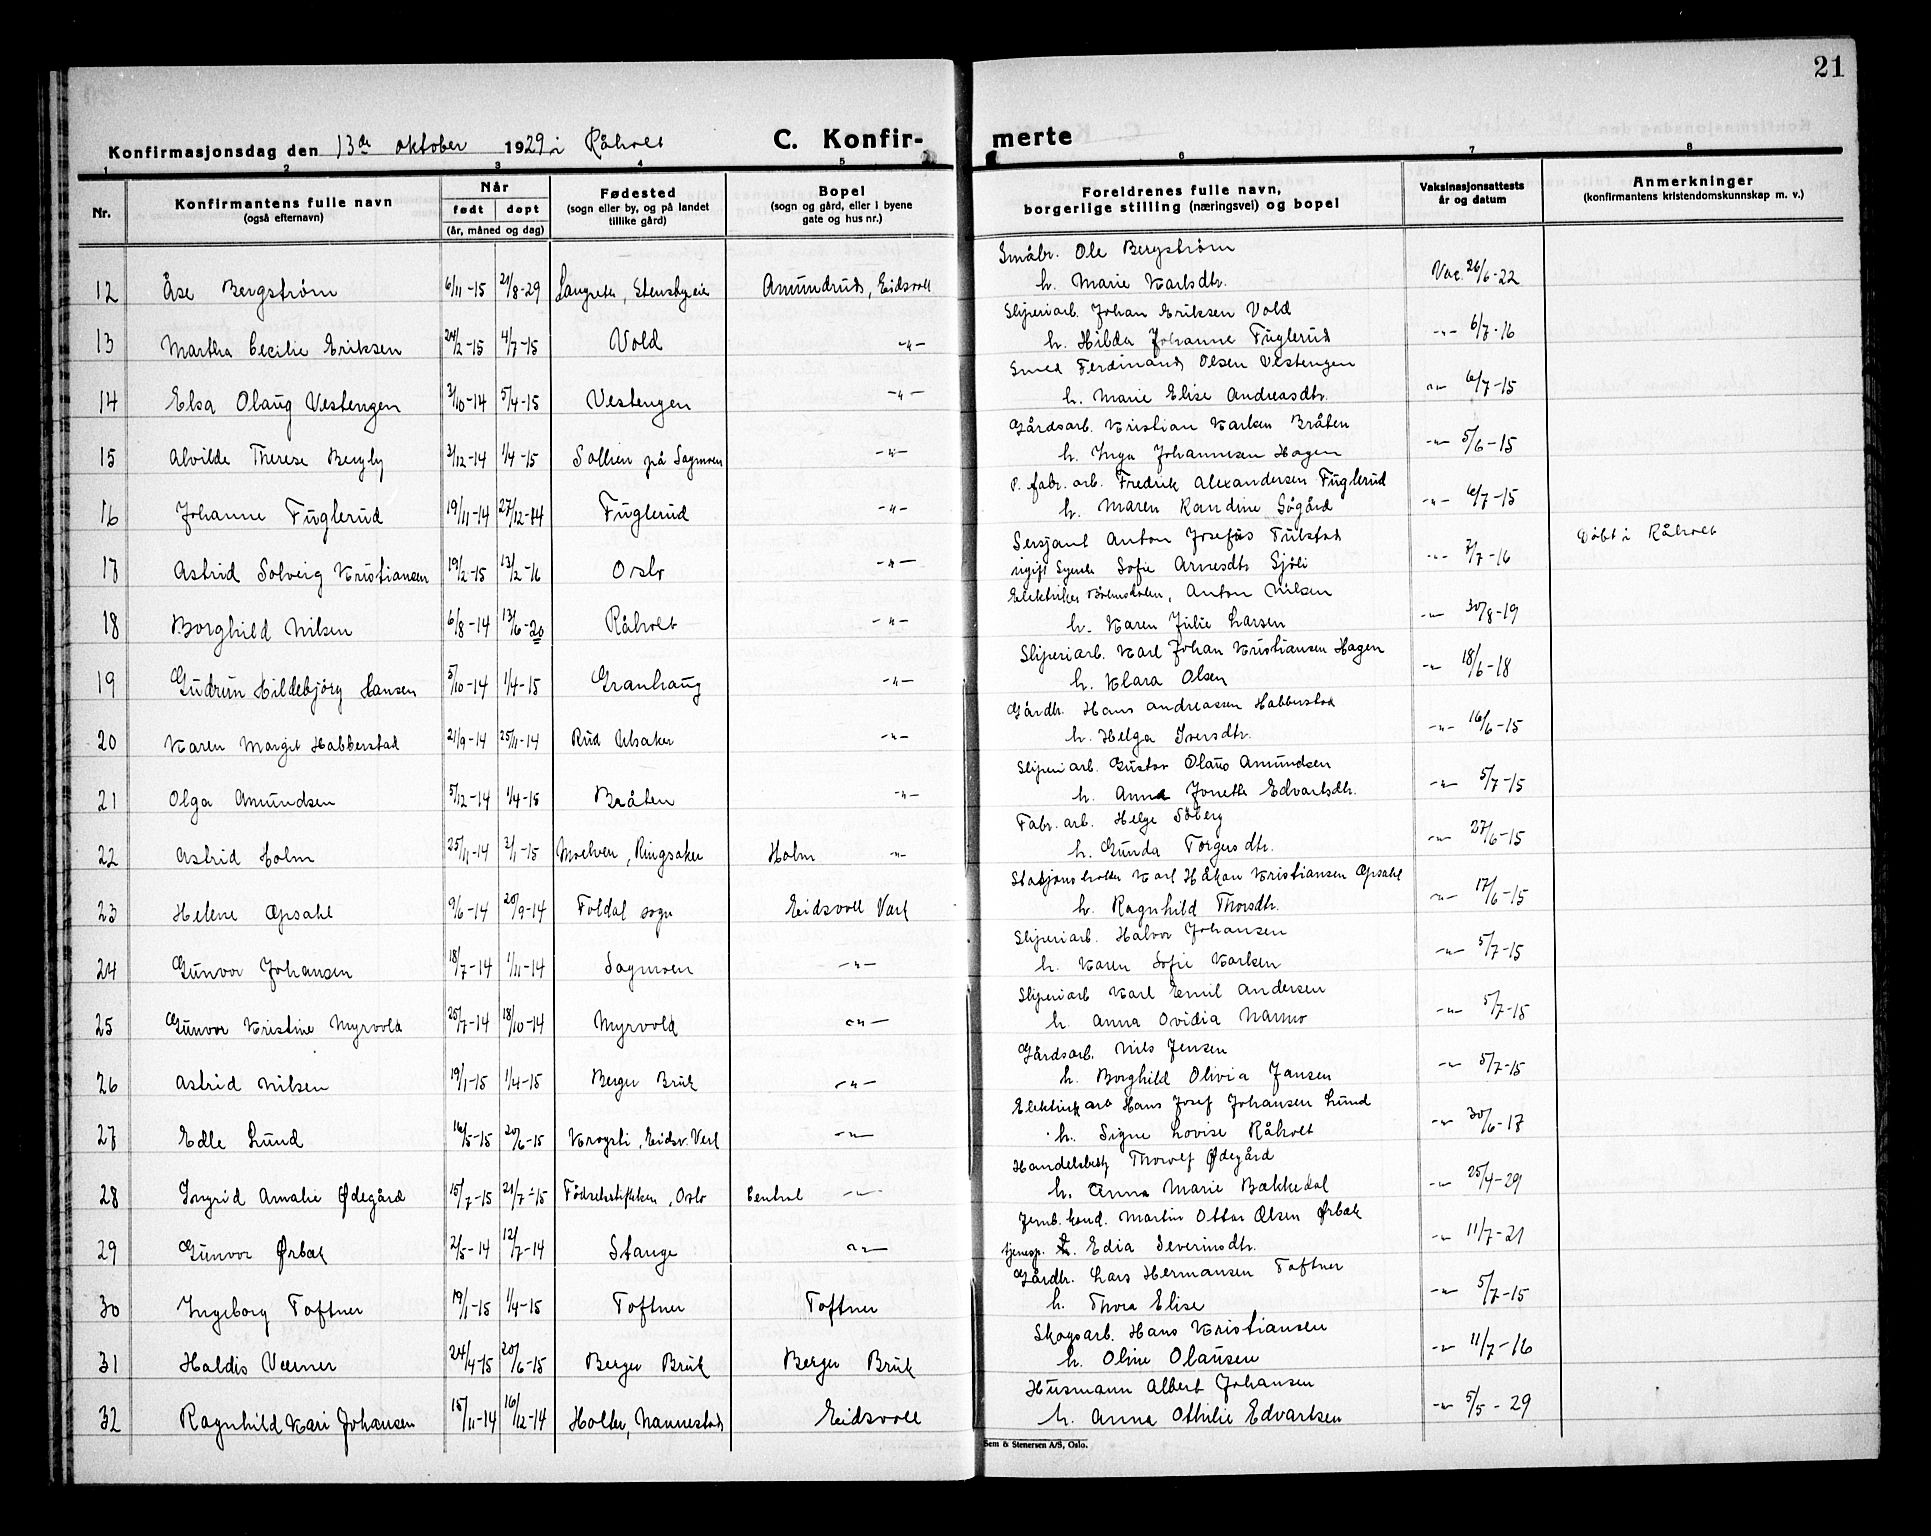 21
Konfirmasjonsdag den 13de oktober 1929 i Råholt
C. Konfir-merte
1 2 3 4 5 6 7 8
Nr. Konfirmantens fulle navn (også efternavn) Når født døpt (år, måned og dag) Fødested (sogn eller by, og på landet tillike gård) Bopel (sogn og gård, eller i byene gate og hus nr.) Foreldrenes fulle navn, borgerlige stilling (næringsvei) og bopel Vaksinasjonsattests år og datum Anmerkninger (konfirmantens kristendomskunnskap m. v.)
Småbr. Ole Bergstrøm
12 Åse Bergstrøm 6/11-15 21/8-29 Langreta, Stensbyeie Amundrud, Eidsvoll h. Marie Karlsdtr. Vac. 26/6-22
Sliperiarb. Johan Eriksen Vold
13 Martha Cecilie Eriksen 24/2-15 4/7-15 Vold -"- h. Hilda Johanne Fuglerud -"- 6/7-16
Smed Ferdinand Olsen Vestengen
14 Elsa Olaug Vestengen 3/10-14 5/4-15 Vestengen -"- h. Marie Elise Andreasdtr. -"- 6/7-15
Gårdsarb. Kristian Karlsen Bråten
15 Alvilde Therese Bergby 3/12-14 1/4-15 Sollien på Sagmoen -"- h. Inga Johannesen Hagen -"- 5/6-15
P. fabr. arb. Fredrik Alexandersen Fuglerud
16 Johanne Fuglerud 19/11-14 27/12-14 Fuglerud -"- h. Maren Randine Søgård -"- 6/7-15
Sersjant Anton Josefus Tulstad
17 Astrid Solveig Kristiansen 19/2-15 13/2-16 Oslo -"- ugift Syersk Sofie Arnesdtr Sjøli -"- 7/7-16 Døbt i Råholt
Elektriker Anton Nilsen
18 Borghild Nilsen 6/8-14 13/6-20 Råholt -"- h. Karen Julie Larsen -"- 30/8-19
Sliperiarb. Karl Johan Kristiansen Hagen
19 Gudrun Hildebjørg Hansen 5/10-14 1/4-15 Granhaug -"- h. Klara Olsen -"- 18/6-18
Gårdbr. Hans Andreassen Habberstad
20 Karen Margit Habberstad 21/9-14 25/11-14 Rud Ulsaker -"- h. Helga Iversdtr. -"- 16/6-15
Sliperiarb. Gustav Olaus Amundsen
21 Olga Amundsen 5/12-14 1/4-15 Bråten -"- h. Anna Jonette Edvartsdtr. -"- 5/7-15
Fabr. arb. Helge Søberg
22 Astrid Holm 25/11-14 3/1-15 Moelven, Ringsaker Holm -"- h. Gunda Torgersdtr. -"- 27/6-15
Stasjonsholder Karl Håkan Kristiansen Opsahl
23 Helene Opsahl 9/6-14 20/9-14 Foldal sogn Eidsvoll Verk h. Ragnhild Thorsdtr. -"- 17/6-15
Sliperiarb. Halvor Johansen
24 Gunvor Johansen 18/7-14 1/11-14 Sagmoen -"- h. Karen Sofie Karlsen -"- 5/7-15
Sliperiarb Karl Emil Andersen
25 Gunvor Kristine Myrvold 25/7-14 18/10-14 Myrvold -"- h. Anna Ovidia Narmo -"- 5/7-15
Gårdsarb. Nils Jensen
26 Astrid Nilsen 19/1-15 1/4-15 Berger Bruk -"- h. Borghild Olivia Jansen -"- 5/7-15
Elektrikarb Hans Josef Johansen Lund
27 Edle Lund 16/5-15 20/6-15 Krogsti, Eidsv. Verk -"- h. Signe Lovise Råholt -"- 30/6-17
Handelsbest. Thorolf Ødegård
28 Ingrid Amalie Ødegård 15/7-15 21/7-15 Fødselsstiftelsen, Oslo Central -"- h. Anna Marie Bækkedal -"- 25/4-29
Jernb. kond. Martin Ottar Olsen Ørbæk
29 Gunvor Ørbæk 2/5-14 12/7-14 Stange -"- tjenesp. h. Edia Severinsdtr. -"- 11/7-21
Gårdbr. Lars Hermansen Toftner
30 Ingeborg Toftner 19/1-15 1/4-15 Toftner Toftner h. Thora Elise -"- 5/7-15
Skogsarb. Hans Kristiansen
31 Haldis Verner 24/4-15 20/6-15 Berger Bruk Berger Bruk h. Oline Olausen -"- 11/7-16
Husmann Albert Johansen
32 Ragnhild Kari Johansen 15/11-14 16/12-14 Holler, Nannestad Eidsvoll h. Anna Othilie Edvartsen -"- 5/5-29
Sem & Stenersen A/S, Oslo.